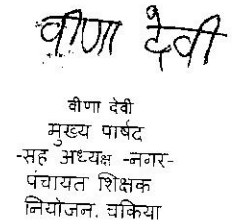 वीणा देवी
वीणा देवी
मुख्य पार्षद
-सह अध्यक्ष -नगर-
पंचायत शिक्षक
नियोजन. चकिया